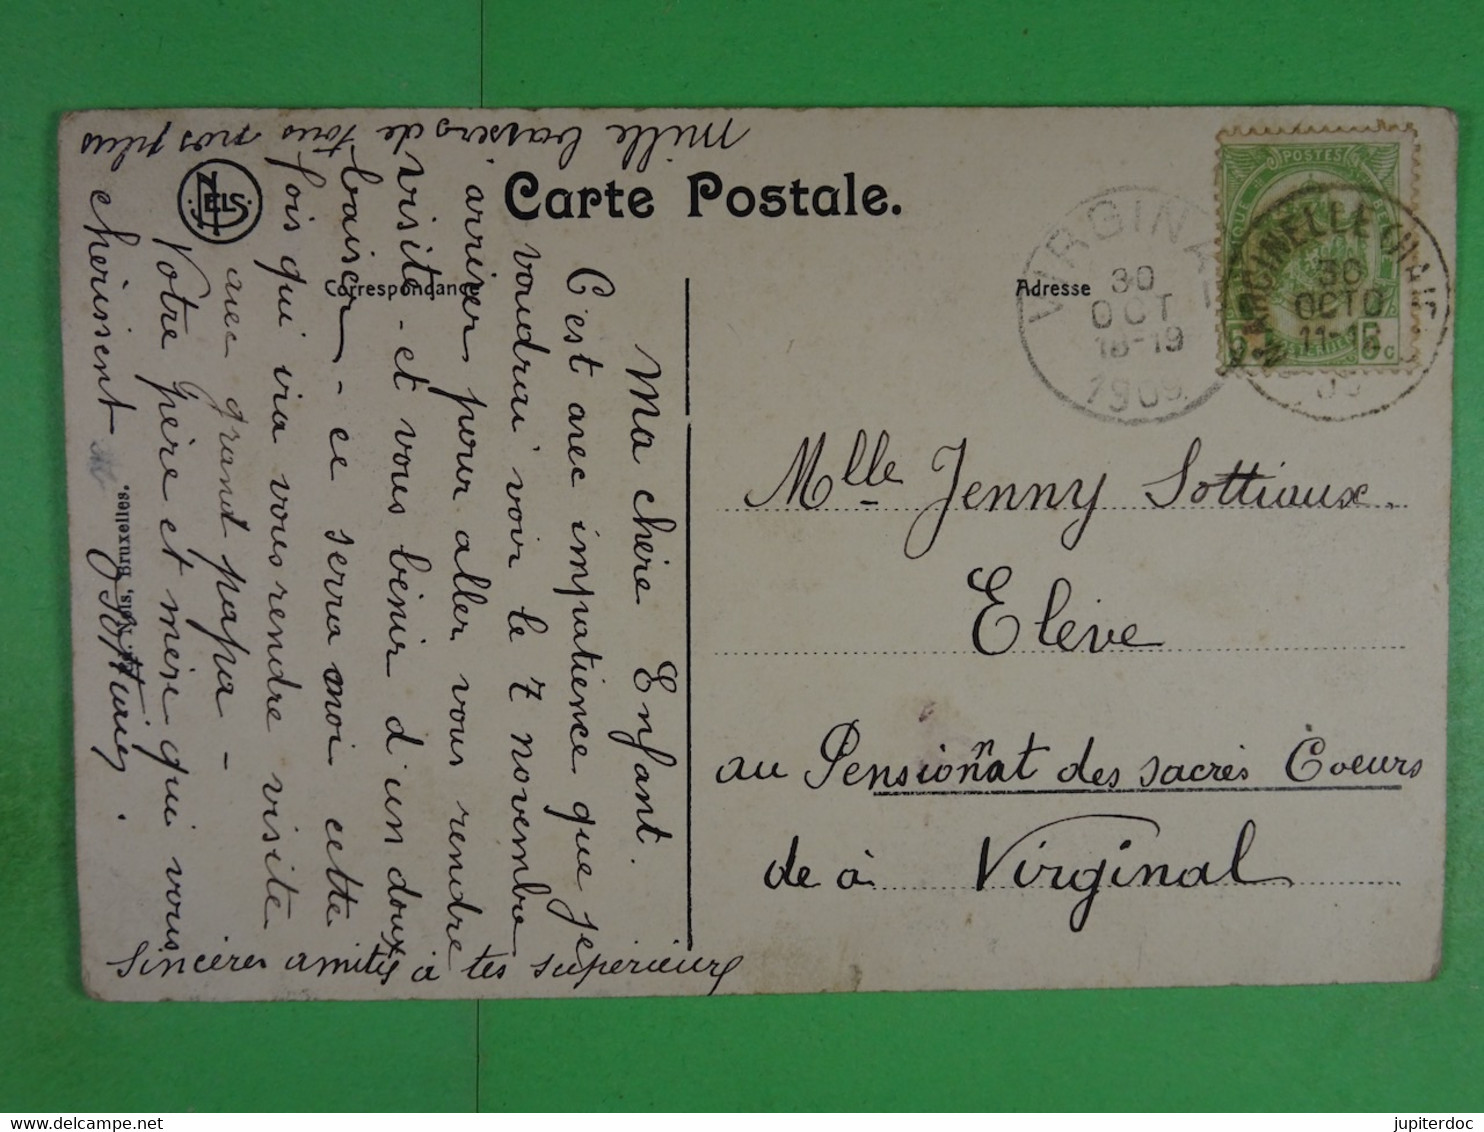 Carte Postale.
Correspondance
Adresse
Ma chère Enfant.
C'est avec impatience que je
voudrai voir le 7 novembre
arriver pour aller vous rendre
visite - et vous bénir d'un doux
baiser - ce serra moi cette
fois qui via vous rendre visite
avec grand papa -
Votre père et mère qui vous
chérissent
Sottiaux.
Mille baisers de tous nos plus
Sincères amitiés à tes supérieurs
Nels, Bruxelles.
NELS
Mlle Jenny Sottiaux.
Elève
au Pensionnat des sacrés Coeurs
de à Virginal
VIRGINAL
30
OCT
18-19
1909
MARCINELLE
30
OCTO
11-12
09
POSTES
5c
jupiterdoc